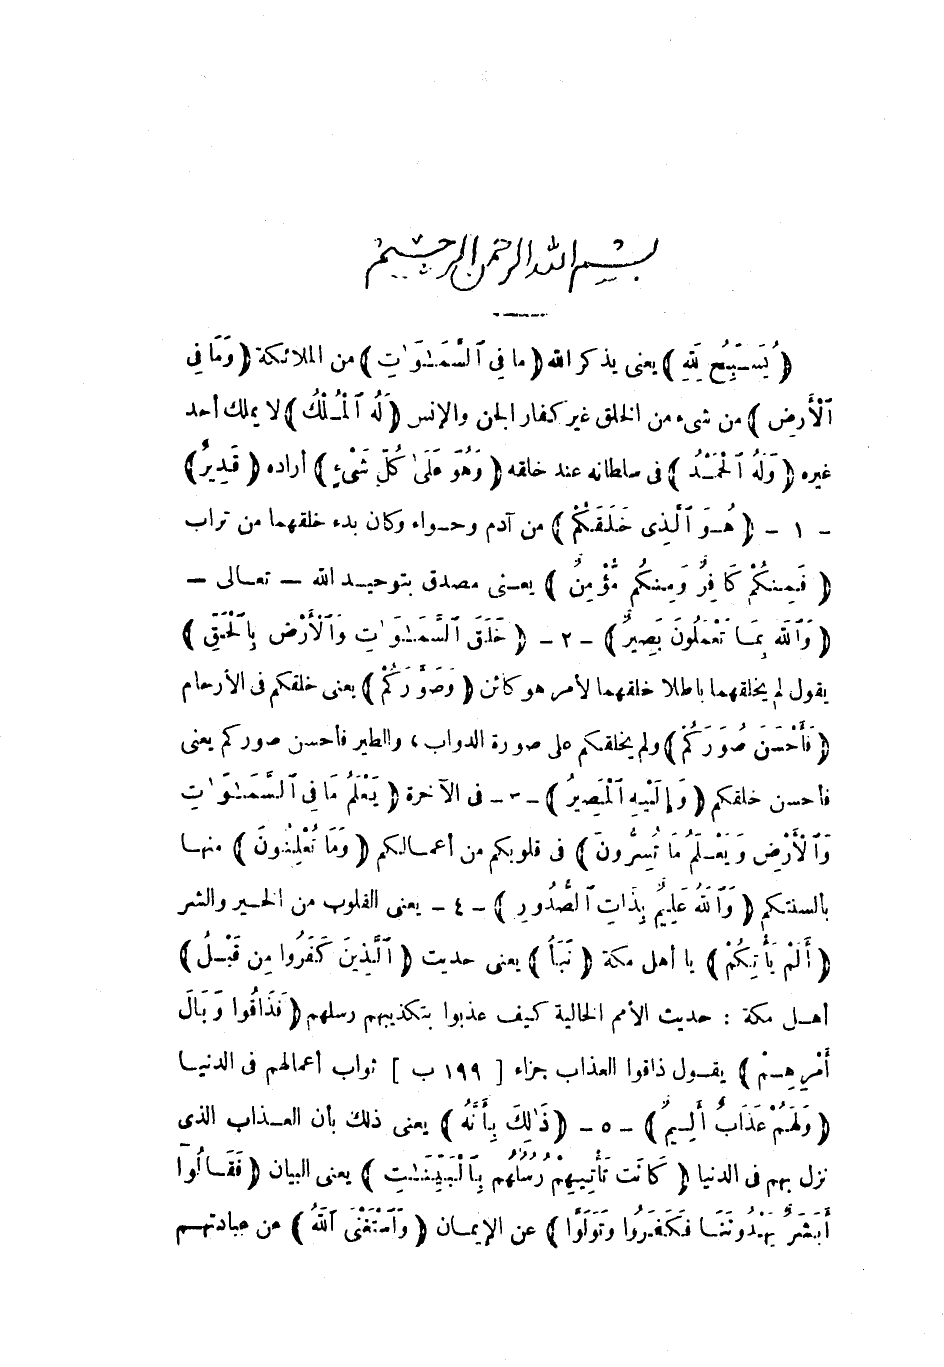 بسم الله الرحمن الرحيم
﴿ يُسَبِّحُ لِلَّهِ ﴾ يعنى يذكر الله ﴿ مَا فِي ٱلسَّمَـٰوَٰتِ ﴾ من الملائكة ﴿ وَمَا فِي
ٱلْأَرْضِ ﴾ من شىء من الخلق غير كفار الجن والإنس ﴿ لَهُ ٱلْمُلْكُ ﴾ لا يملك أحد
غيره ﴿ وَلَهُ ٱلْحَمْدُ ﴾ فى سلطانه عند خلقه ﴿ وَهُوَ عَلَىٰ كُلِّ شَىْءٍ ﴾ أراده ﴿ قَدِيرٌ ﴾
- ١ - ﴿ هُوَ ٱلَّذِى خَلَقَكُمْ ﴾ من آدم وحواء وكان بدء خلقهما من تراب
﴿ فَمِنكُمْ كَافِرٌ وَمِنكُم مُّؤْمِنٌ ﴾ يعنى مصدق بتوحيد الله – تعالى –
﴿ وَٱللَّهُ بِمَا تَعْمَلُونَ بَصِيرٌ ﴾ - ٢ - ﴿ خَلَقَ ٱلسَّمَـٰوَٰتِ وَٱلْأَرْضَ بِٱلْحَقِّ ﴾
يقول لم يخلقهما باطلا خلقهما لأمر هو كائن ﴿ وَصَوَّرَكُمْ ﴾ يعنى خلقكم فى الأرحام
﴿ فَأَحْسَنَ صُوَرَكُمْ ﴾ ولم يخلقكم على صورة الدواب، والطير فأحسن صوركم يعنى
فأحسن خلقكم ﴿ وَإِلَيْهِ ٱلْمَصِيرُ ﴾ - ٣ - فى الآخرة ﴿ يَعْلَمُ مَا فِي ٱلسَّمَـٰوَٰتِ
وَٱلْأَرْضِ وَيَعْلَمُ مَا تُسِرُّونَ ﴾ فى قلوبكم من أعمالكم ﴿ وَمَا تُعْلِنُونَ ﴾ منها
بألسنتكم ﴿ وَٱللَّهُ عَلِيمٌ بِذَاتِ ٱلصُّدُورِ ﴾ - ٤ - يعنى القلوب من الخير والشر
﴿ أَلَمْ يَأْتِكُمْ ﴾ يا أهل مكة ﴿ نَبَأُ ﴾ يعنى حديث ﴿ ٱلَّذِينَ كَفَرُوا مِن قَبْلُ ﴾
أهل مكة : حديث الأمم الخالية كيف عذبوا بتكذيبهم رسلهم ﴿ فَذَاقُوا وَبَالَ
أَمْرِهِمْ ﴾ يقول ذاقوا العذاب جزاء [ ١٩٩ ب ] ثواب أعمالهم فى الدنيا
﴿ وَلَهُمْ عَذَابٌ أَلِيمٌ ﴾ - ٥ - ﴿ ذَٰلِكَ بِأَنَّهُ ﴾ يعنى ذلك بأن العذاب الذى
نزل بهم فى الدنيا ﴿ كَانَت تَأْتِيهِمْ رُسُلُهُم بِٱلْبَيِّنَـٰتِ ﴾ يعنى البيان ﴿ فَقَالُوٓا
أَبَشَرٌ يَهْدُونَنَا فَكَفَرُوا وَتَوَلَّوا ﴾ عن الإيمان ﴿ وَٱسْتَغْنَى ٱللَّهُ ﴾ عن عبادتهم